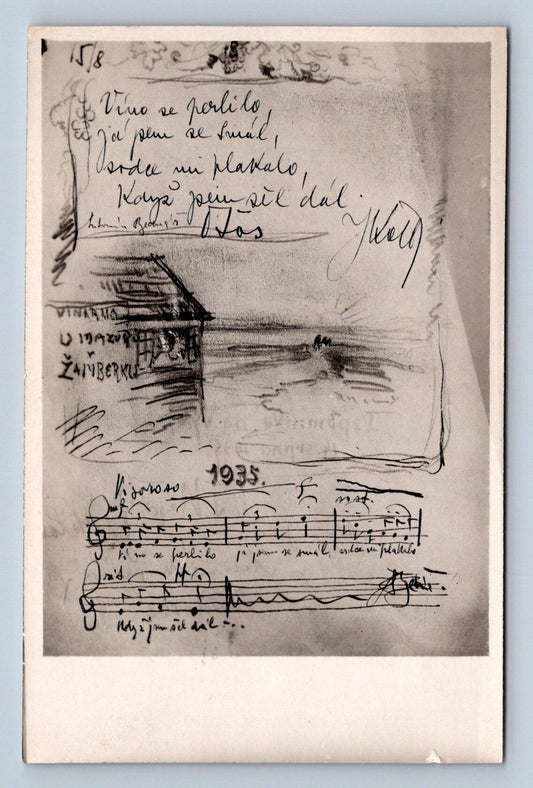 15/8
Víno se perlilo,
já jsem se smál,
srdce mi plakalo,
Když jsem šel dál.
VINÁRNA
U
ŽAMBERKU
1935.
Vigoroso
mf f rest.
Ví no se perlilo já jsem se smál, srdce mi plakalo
Když jsem šel dál - . .